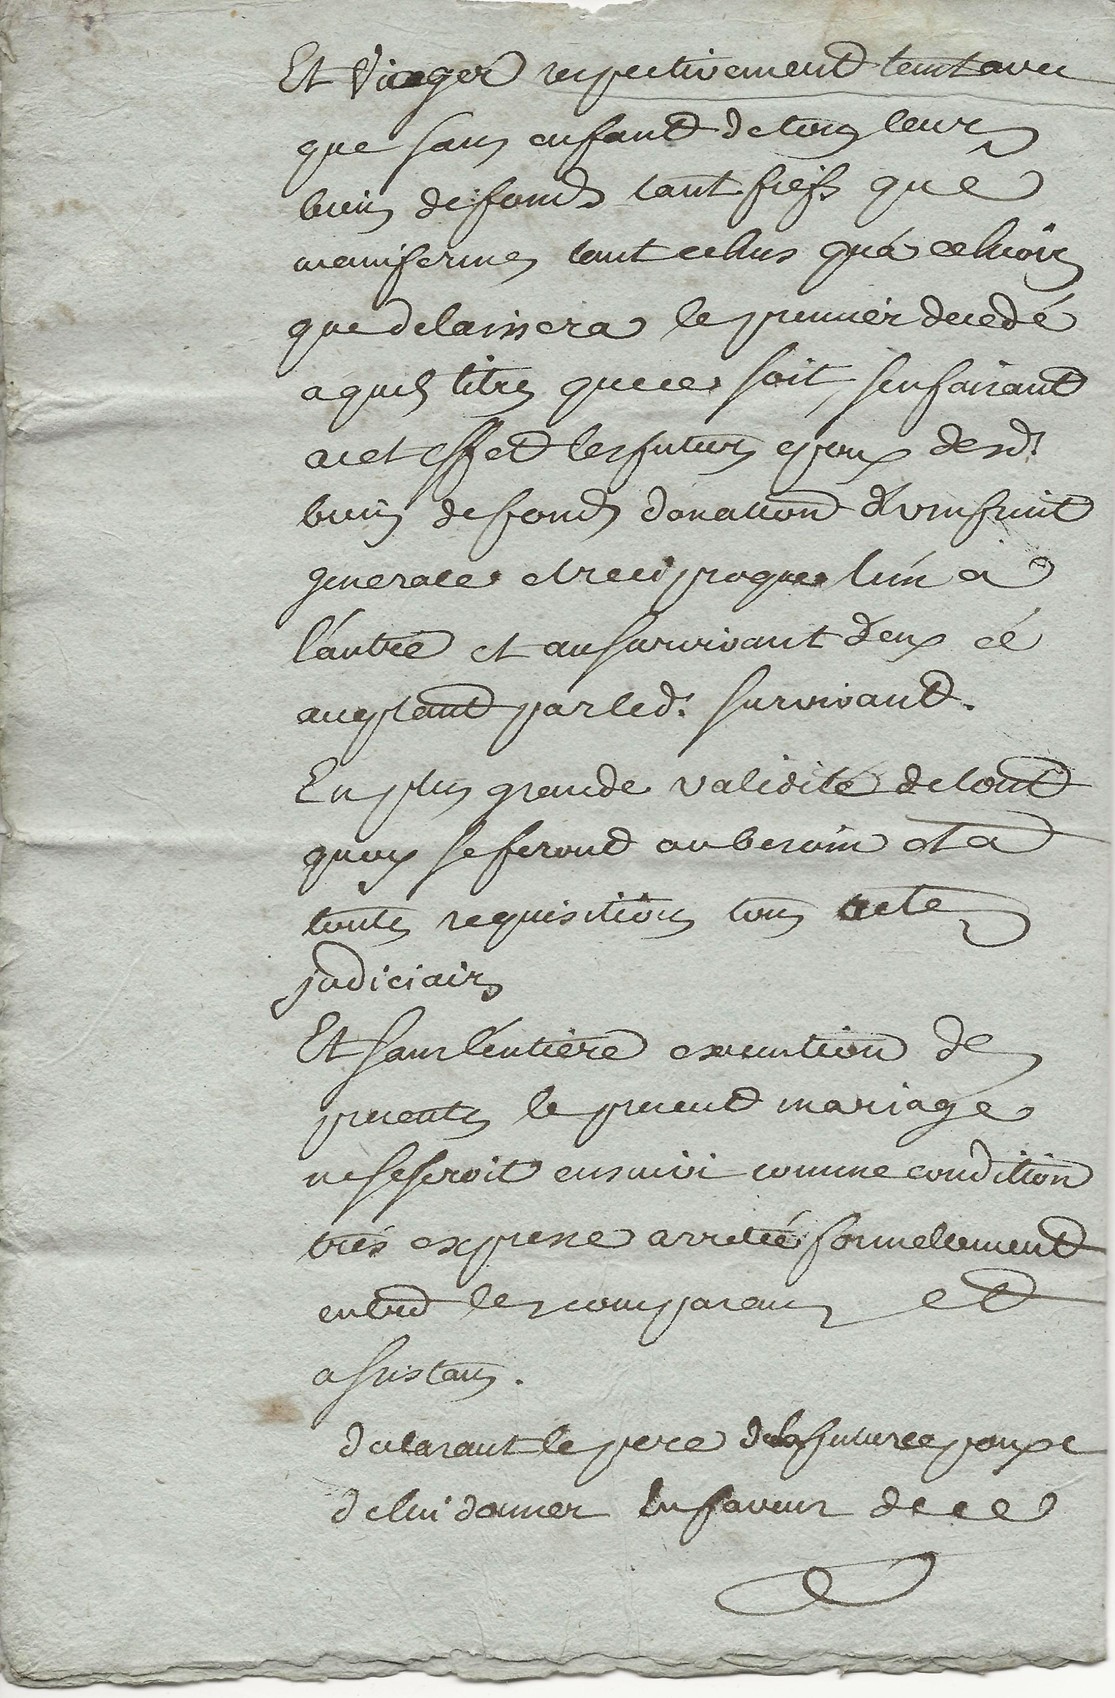 Et Viager respectivement tant avec
que sans enfant de tous leurs
biens de fonds tant fiefs que
mainfermes tant echus qu'a echeoir
que delaissera le premier decedé
a quels titres que ce soit, se faisant
a cet effet les futurs epoux desdts
biens de fonds donation d'usufruit
generale et reciproque l'un a
l'autre et au survivant d'eux ce
acceptant par led. survivant.
En plus grande validité de tout
quoy se feront au besoin et a
toutes requisitions tous actes
judiciaires
Et sans l'entière execution des
presentes le present mariage
ne se seroit ensuivi comme condition
trés expresse arretée formellement
entre les comparans et
assistans.
declarant le pere de la future epouse
de lui donner en faveur de ce